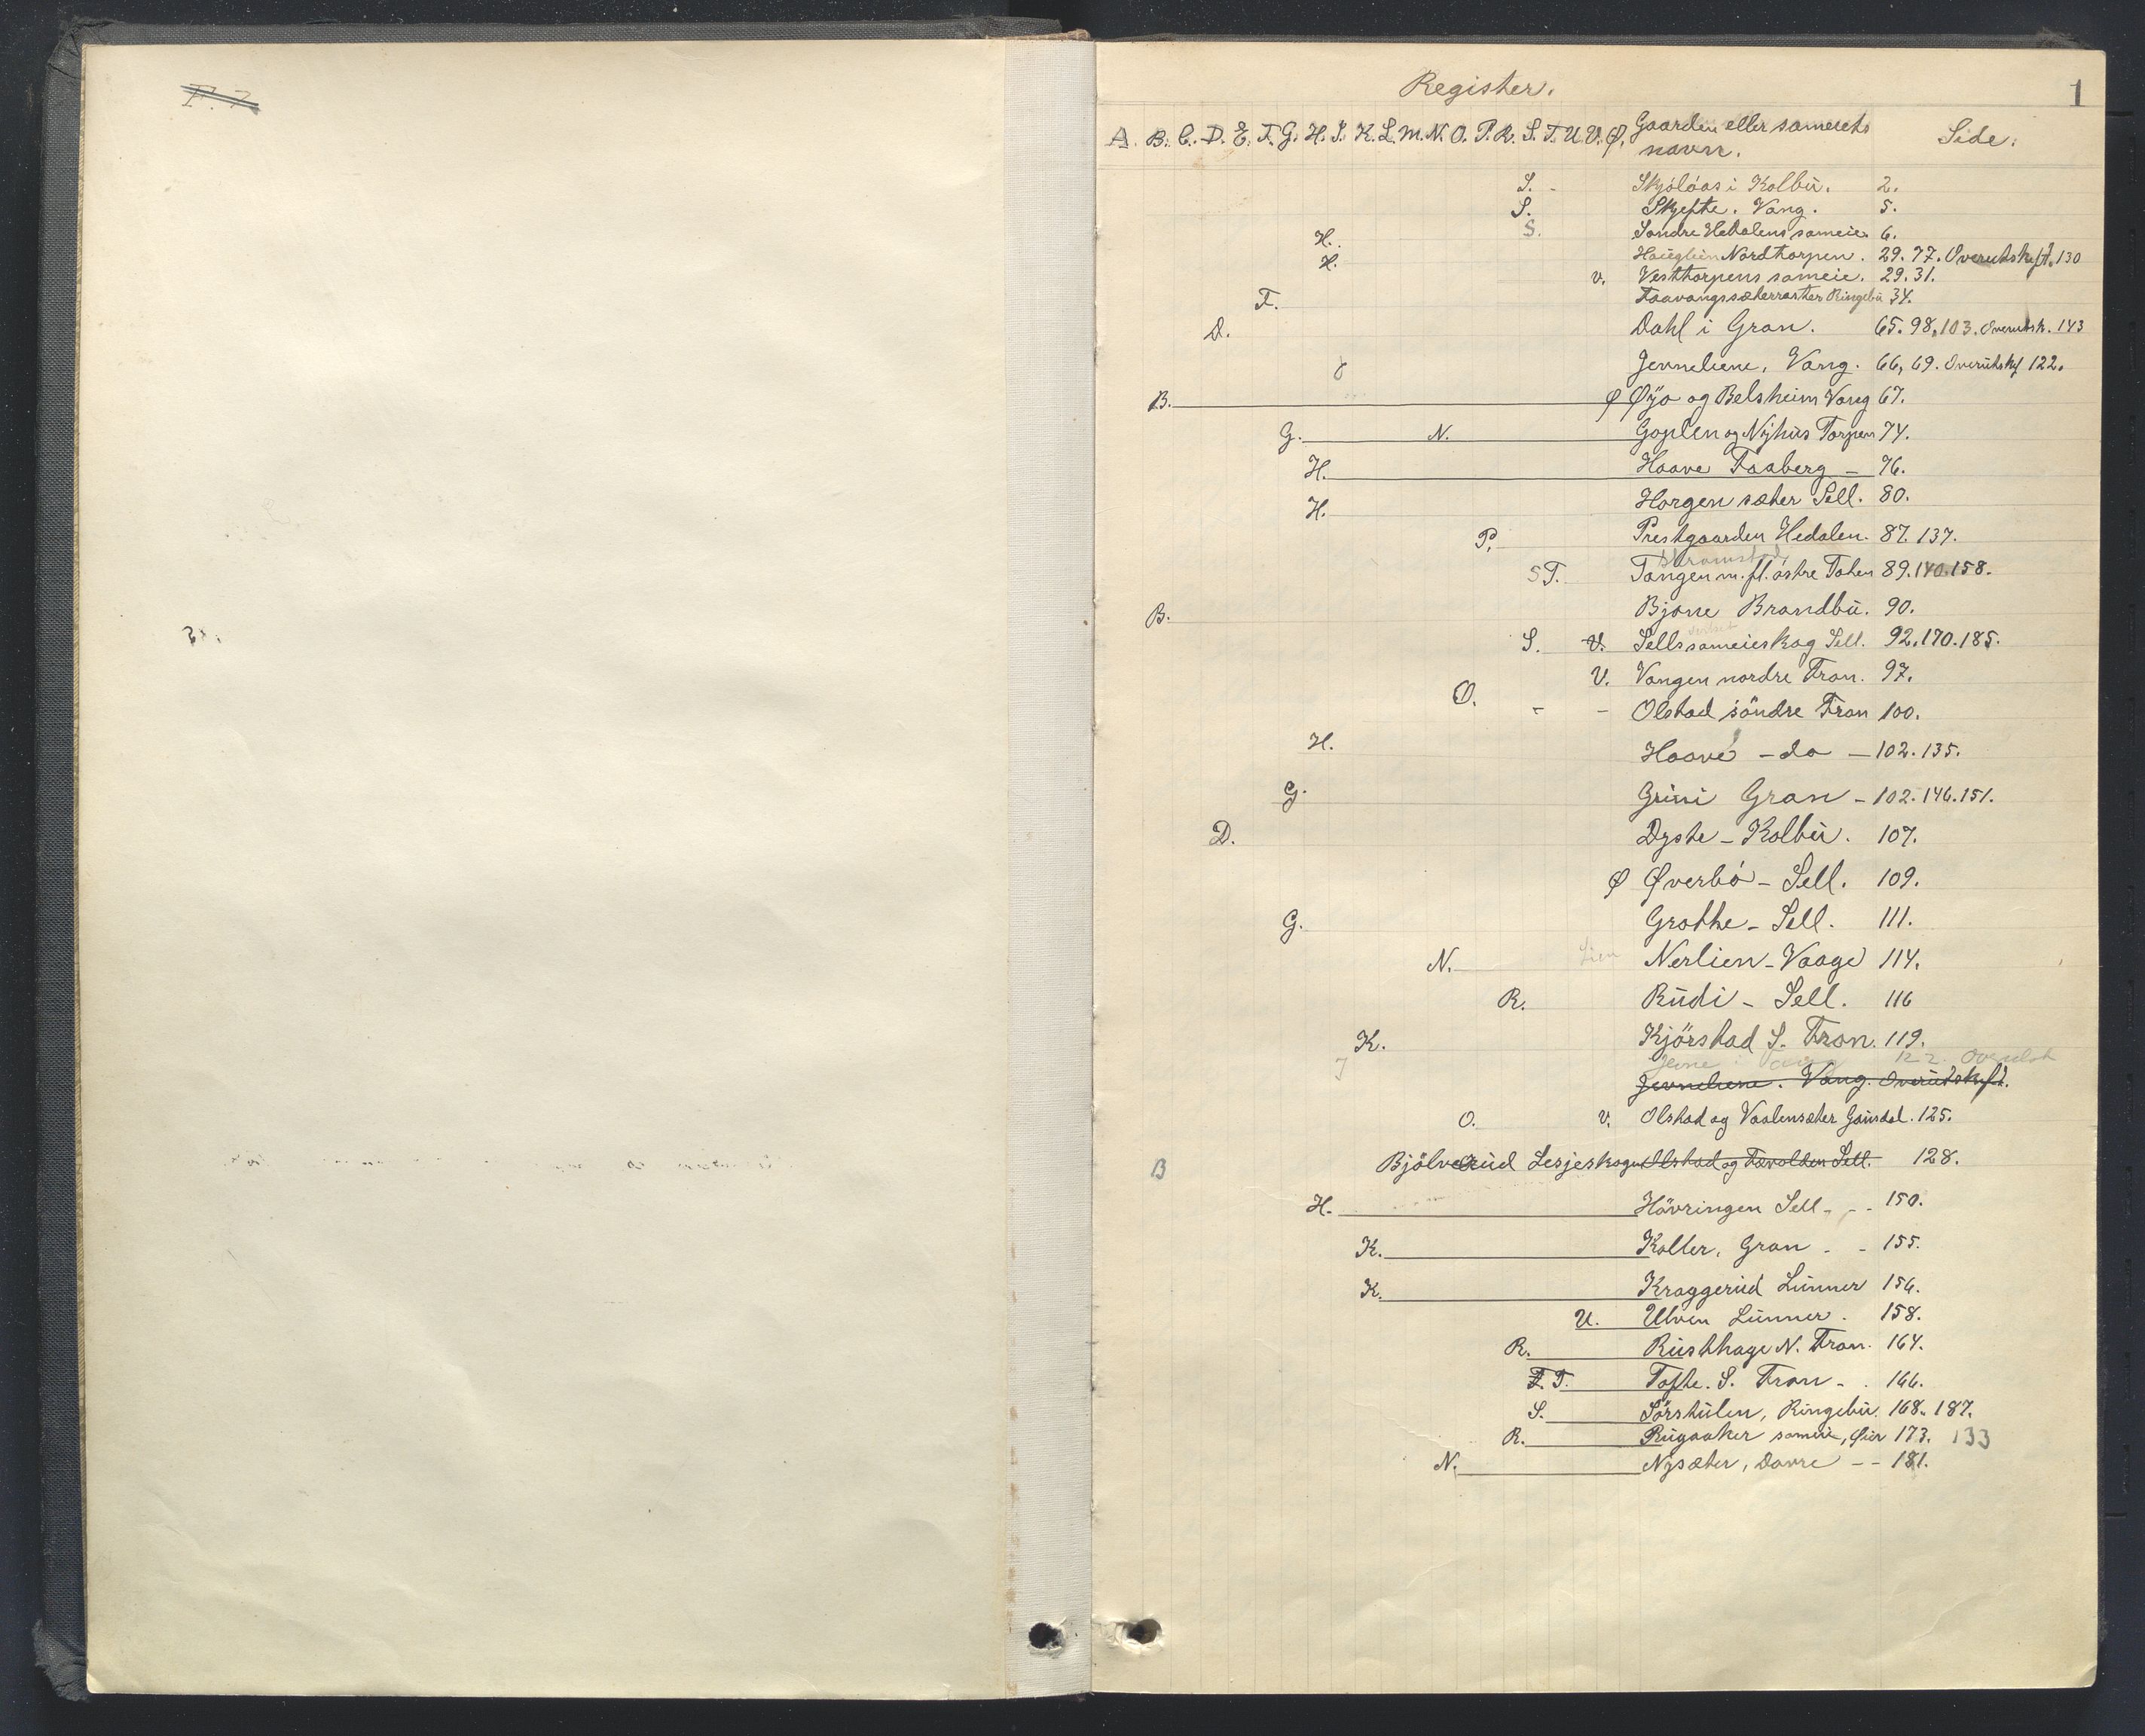 F. 7.
Register.
1
A. B. C. D. E. F. G. H. I. K. L. M. N. O. P. R. S. T. U. V. Ø. Gaarden eller sameiets Side.
navn.
S. - Skjölaas i Kolbu. 2.
S. Skjefte. Vang. 5.
H. S. Söndre Hedalens sameie 6.
H. Nordtorpen. 29. 77. Overutskift. 130
v. Vesttorpens sameie. 29. 31.
F. Faavangssæterrasten Ringebu 34.
D. Dahl i Gran. 65. 98. 103. Overutsk. 143
Jevneliene, Vang. 66, 69. Overutskf 122.
B. Ø Øyo og Belsheim Vang 67.
G. N. Goplen og Nyhus Torpen 74.
H. Haave Faaberg - 76.
H. Horgen sæter Sell. 80.
P. Prestgaarden Hedalen. 87. 137.
S T. Tangen m. fl. östre Toten 89. 140. 158.
B. Bjone Brandbu. 90.
S. V. Sells sameieskog Sell. 92. 170. 185.
V. Vangen nordre Fron. 97.
O. - - Olstad söndre Fron 100.
H. Haave - do - 102. 135.
G. Grini Gran - 102. 146. 151.
D. Dyste - Kolbu. 107.
Ø Øverbö - Sell. 109.
G. Grothe - Sell. 111.
N. Lien Nerlien - Vaage 114.
R. Rudi - Sell. 116
K. Kjörstad S. Fron. 119.
J Jevne i Vang 122. Overutsk
Jevneliene. Vang. Overutskift.
O. v. Olstad og Vaalensæter Gausdal. 125.
B Bjölverud Lesjeskogen Olstad og Sell. 128.
H. Hövringen Sell - - - 150.
K. Koller, Gran - - 155.
K. Kraggerud Lunner 156.
U. Ulven Lunner. 158.
R. Rusthage N. Fron. 164.
F. T. Tofte. S. Fron - . 166.
S. Sörstulen, Ringebu. 168. 187.
R. Rugaaker sameie, Øier 173. 133
N. Nysæter, Dovre - - 181.